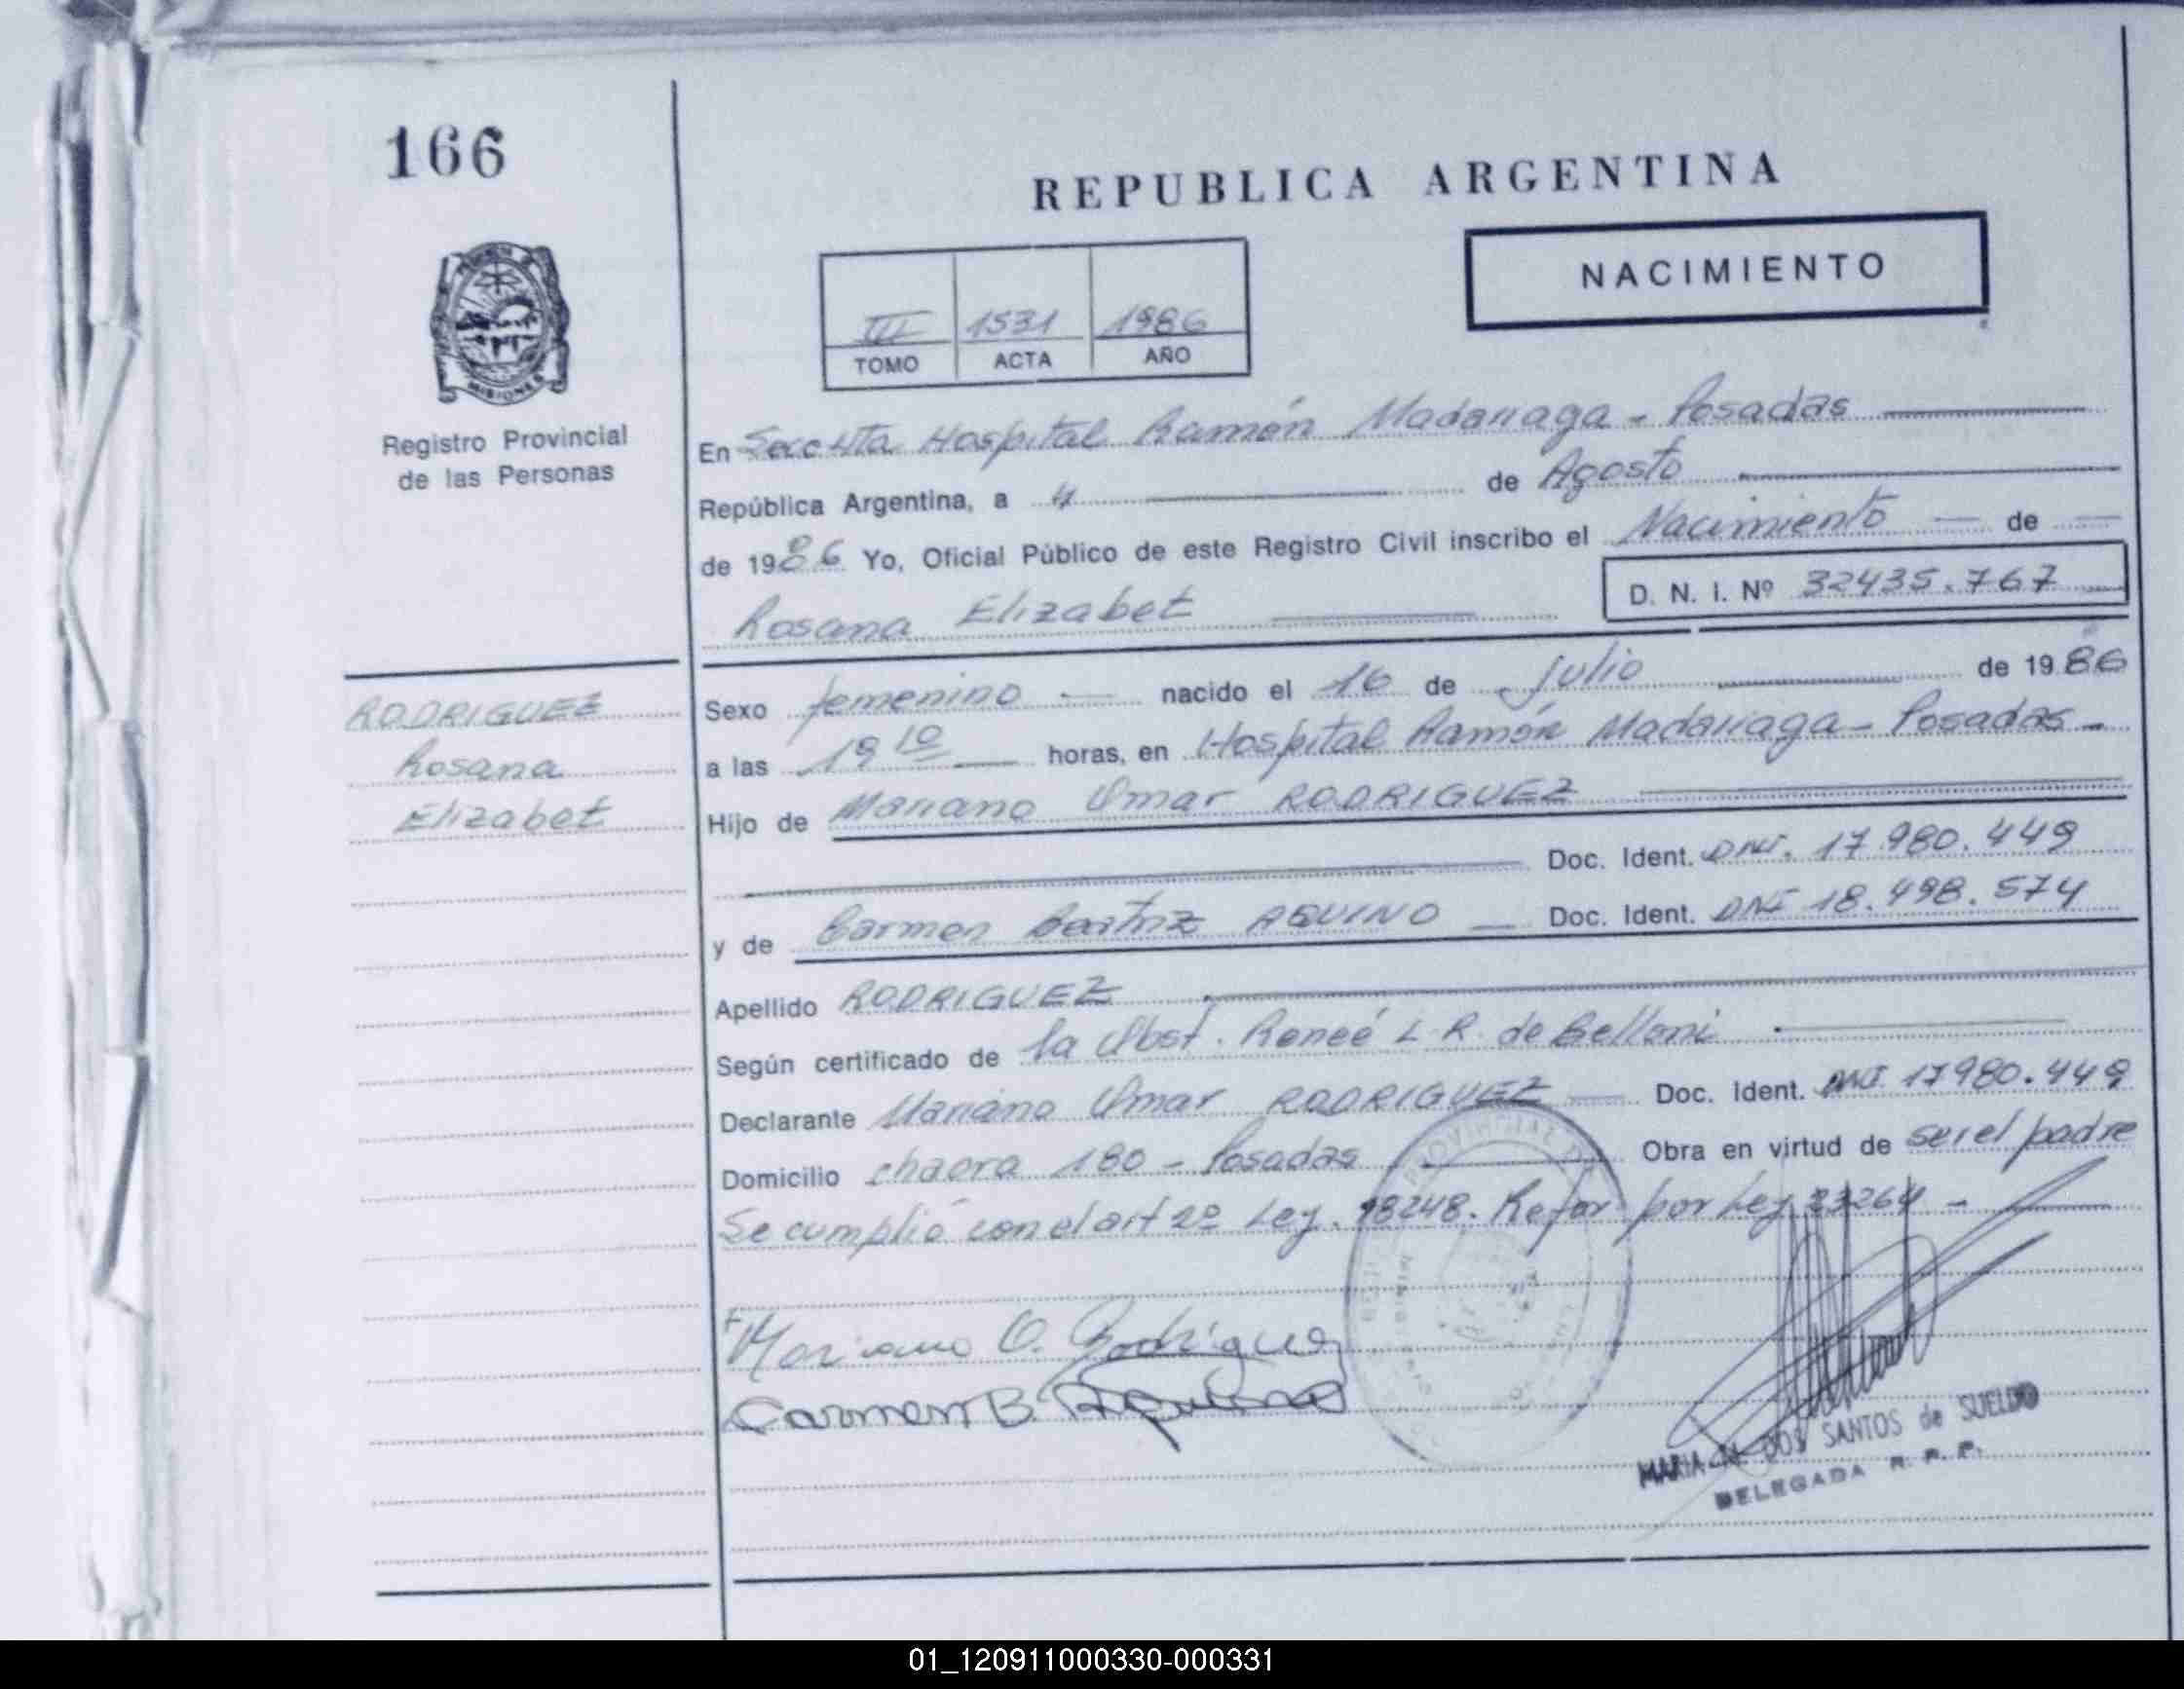 166
REPUBLICA ARGENTINA
NACIMIENTO
III 1531 1986
TOMO ACTA AÑO
MISIONES
Registro Provincial
de las Personas
En Secc Hospital Ramón Madariaga - Posadas
República Argentina, a 4 de Agosto
de 1986 Yo, Oficial Público de este Registro Civil inscribo el Nacimiento de
Rosana Elizabet D. N. I. Nº 32435.767
RODRIGUEZ
Rosana
Elizabet
Sexo femenino nacido el 16 de julio de 1986
a las 19 10 horas, en Hospital Ramón Madariaga - Posadas -
Hijo de Mariano Omar RODRIGUEZ
Doc. Ident. DNI. 17.980.449
y de Carmen Beatriz AQUINO Doc. Ident. DNI 18.498.574
Apellido RODRIGUEZ
Según certificado de la Obst. Reneé L R. de Belloni
Declarante Mariano Omar RODRIGUEZ Doc. Ident. DNI 17980.449
Domicilio chacra 180 - Posadas Obra en virtud de ser el padre
Se cumplió con el art 2º Ley. 18248. Refor por Ley 23264 -
Mariano O. Rodriguez
Carmen B. Aquino
PROVINCIAL
MARIA DOS SANTOS de SUELDO
DELEGADA R. P. P.
01_120911000330-000331